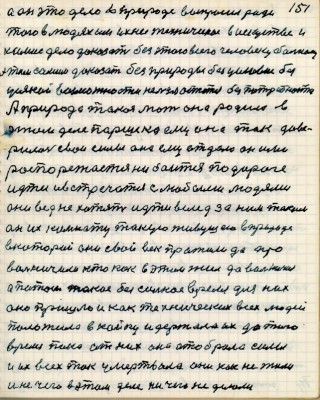 а он это дело в природе выпросил ради 151
того в людях им ихнее техническое в искустве и
химие дело доказать без этого всего человеку больному
этим самим доказать без природы без условии без
всякой возможности
А природа такая мать она родила в
этом деле Паршека ему она так дове-
рилась свои силы она ему отдала он ими
роспоряжается ни боится по дороге
идти и встречатся с любыми людями
они ведь не хотять идти вслед за ним таким
он их комнату такую живущего в природе
в которой они свой век прожили да про
волничили кто как в этом жил да волновал
а потом такое безсилное время для них
оно пришло и как технических всех людей
положило в койку и держала их до того
время пока от них она отобрала силы
и их всех так умертвила они как не жили
и не чего в этом деле ни чего не делали